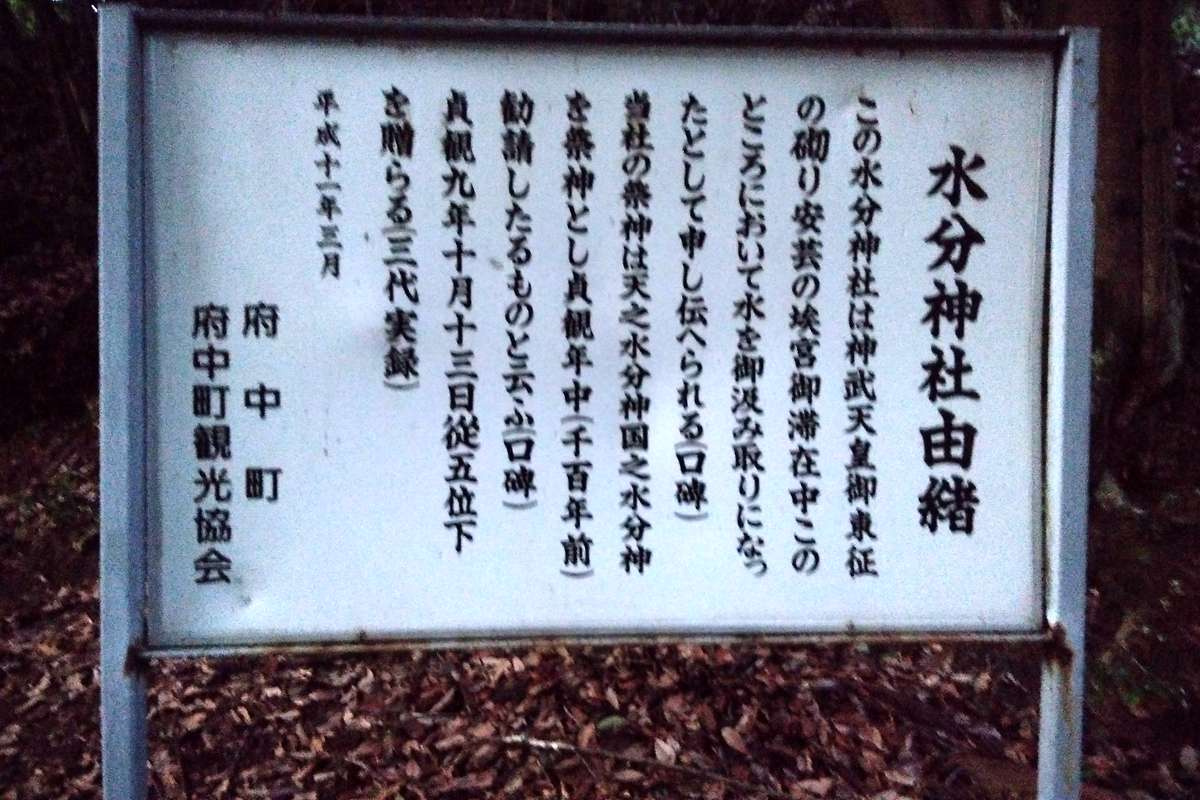 水分神社由緒
この水分神社は神武天皇御東征
の砌り安芸の埃宮御滞在中この
ところにおいて水を御汲み取りになっ
たとして申し伝へられる(口碑)
当社の祭神は天之水分神国之水分神
を祭神とし貞観年中(千百年前)
勧請したるものと云ふ(口碑)
貞観九年十月十三日従五位下
を贈らる(三代実録)
平成十一年三月
府中町
府中町観光協会